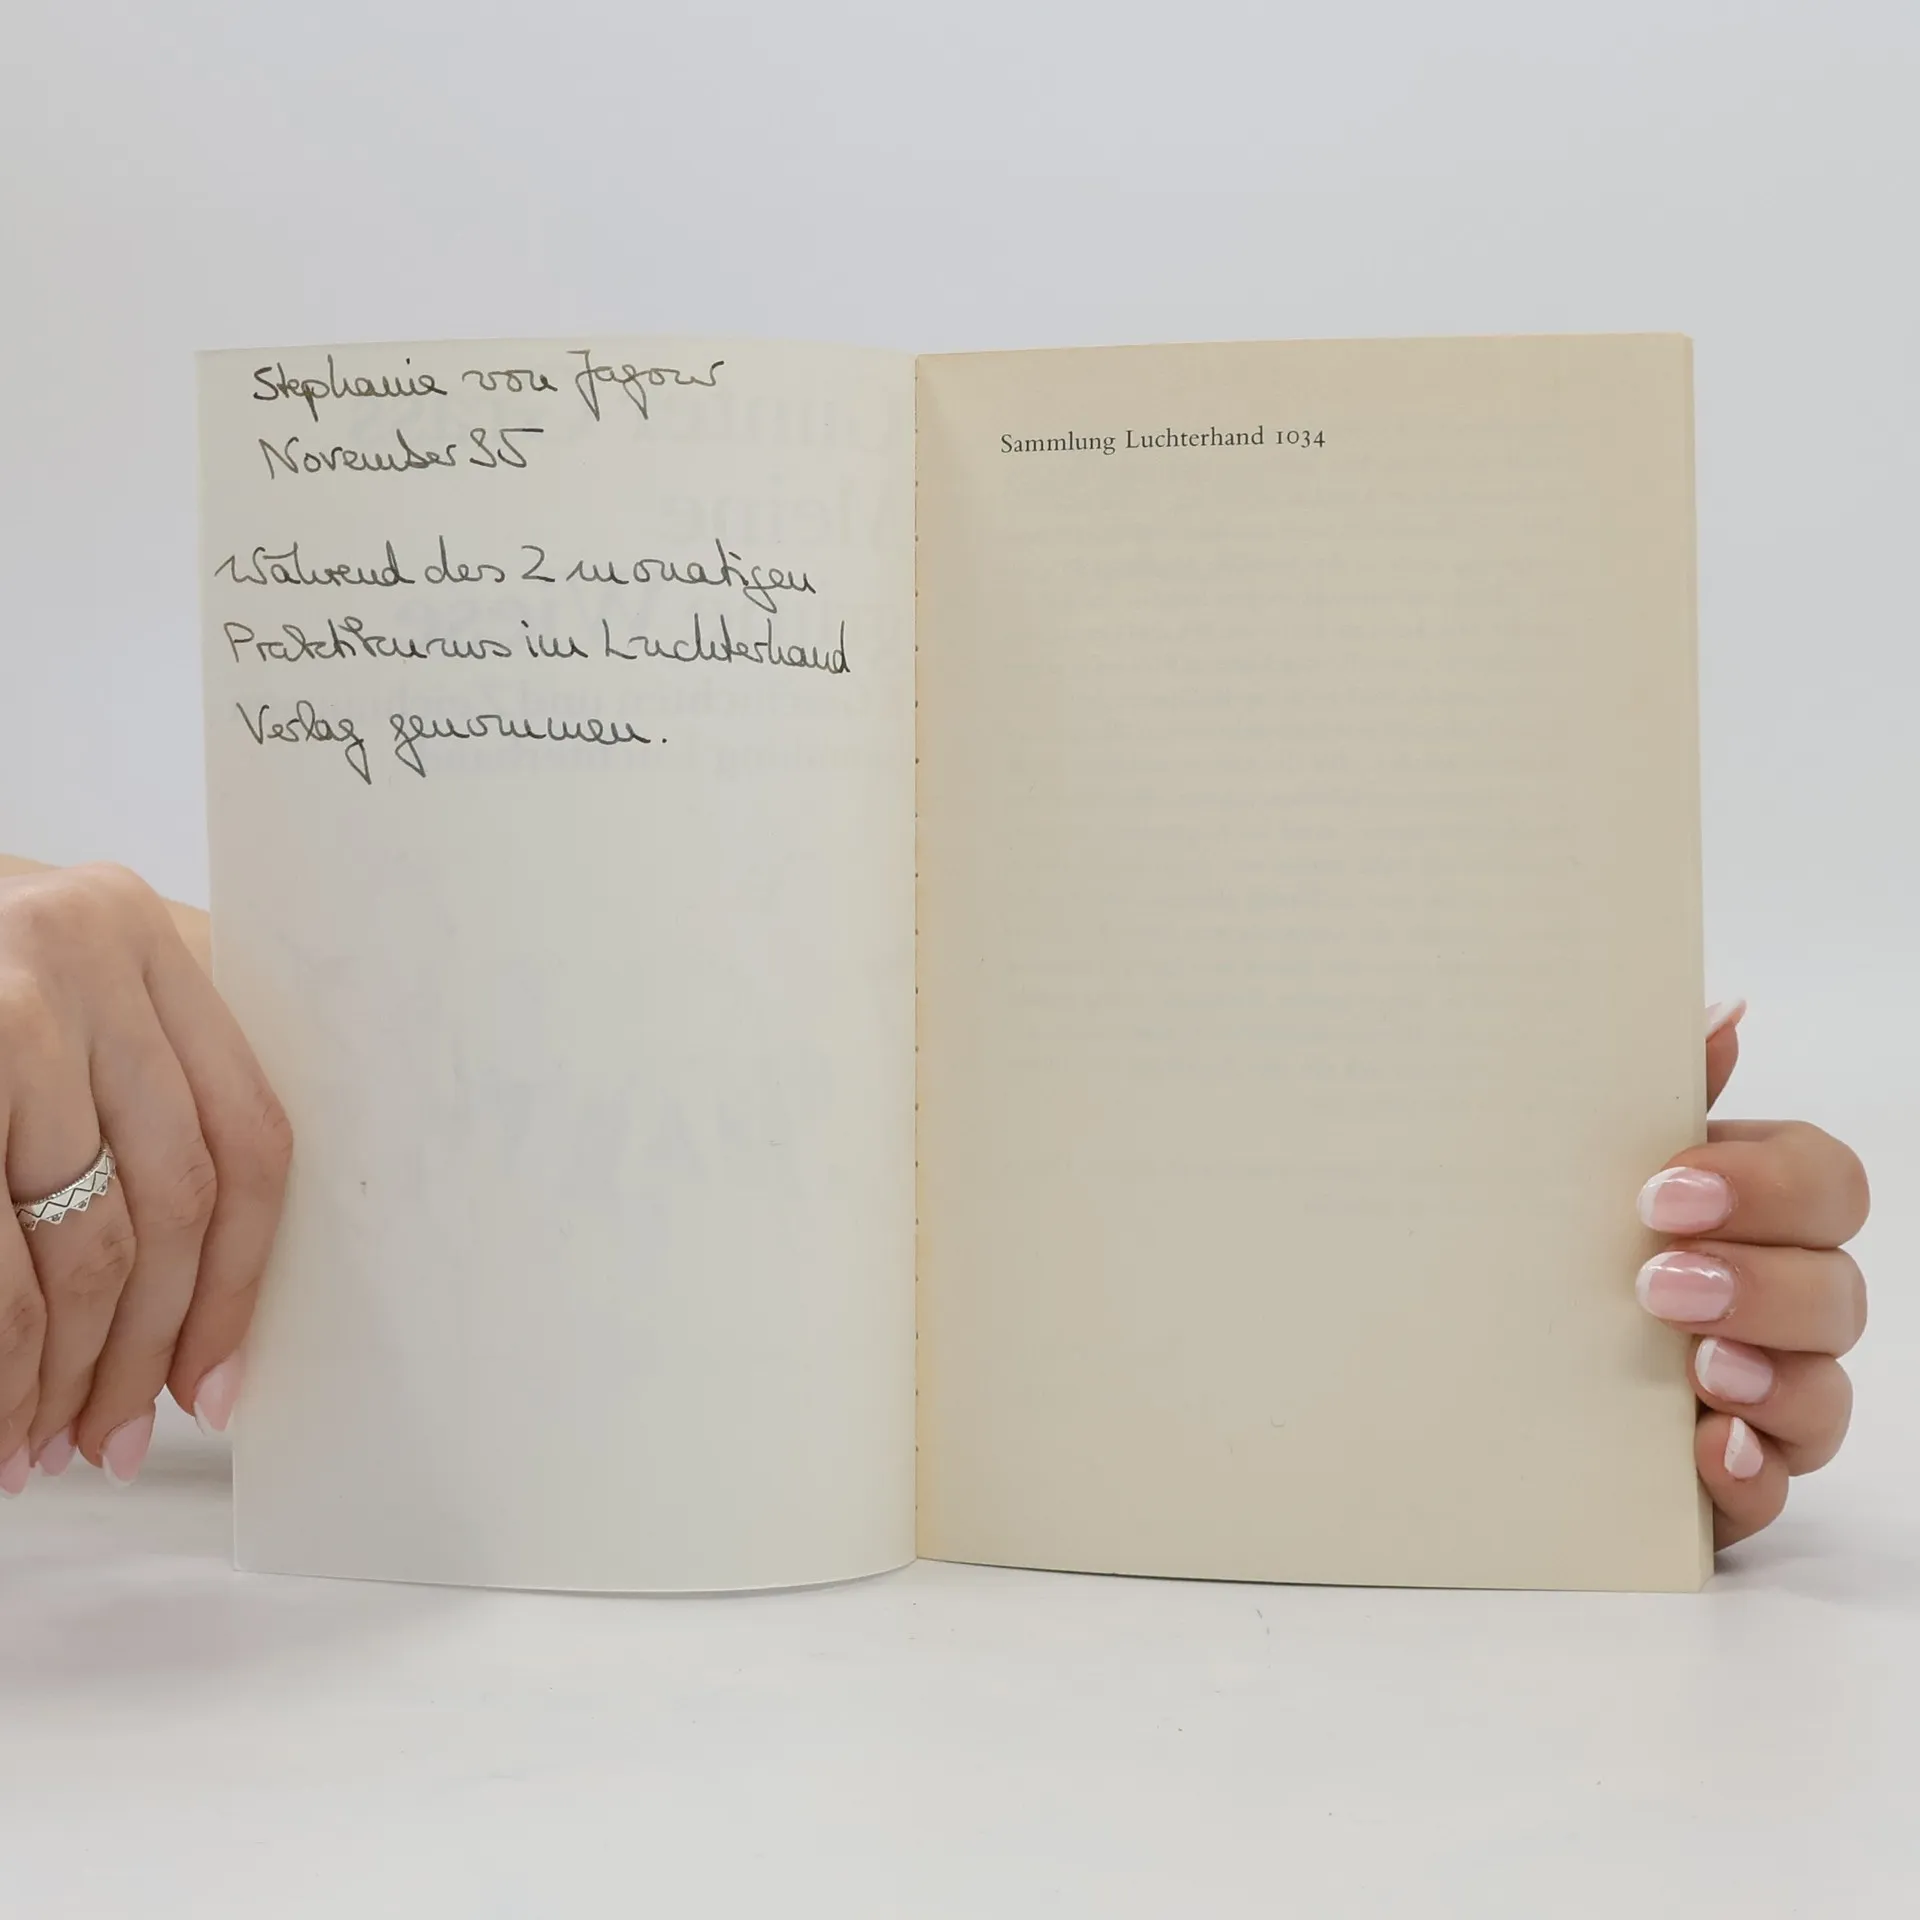 Stephanie von Jagow
November 95
Während des 2 monatigen
Praktikums im Luchterhand
Verlag genommen.
Sammlung Luchterhand 1034